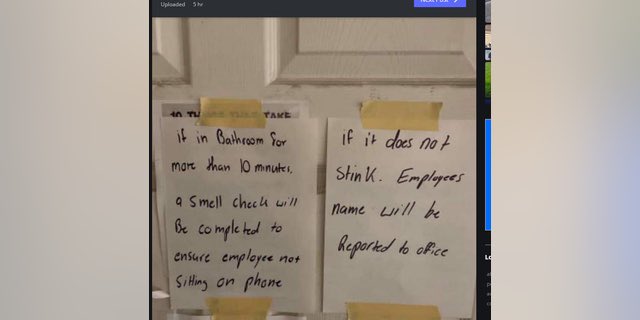 Uploaded 5 hr
Next Post
10 THINGS THAT TAKE
if in Bathroom for
more than 10 minutes,
a Smell check will
Be completed to
ensure employee not
Sitting on phone
if it does not
Stink. Employees
name will be
Reported to office